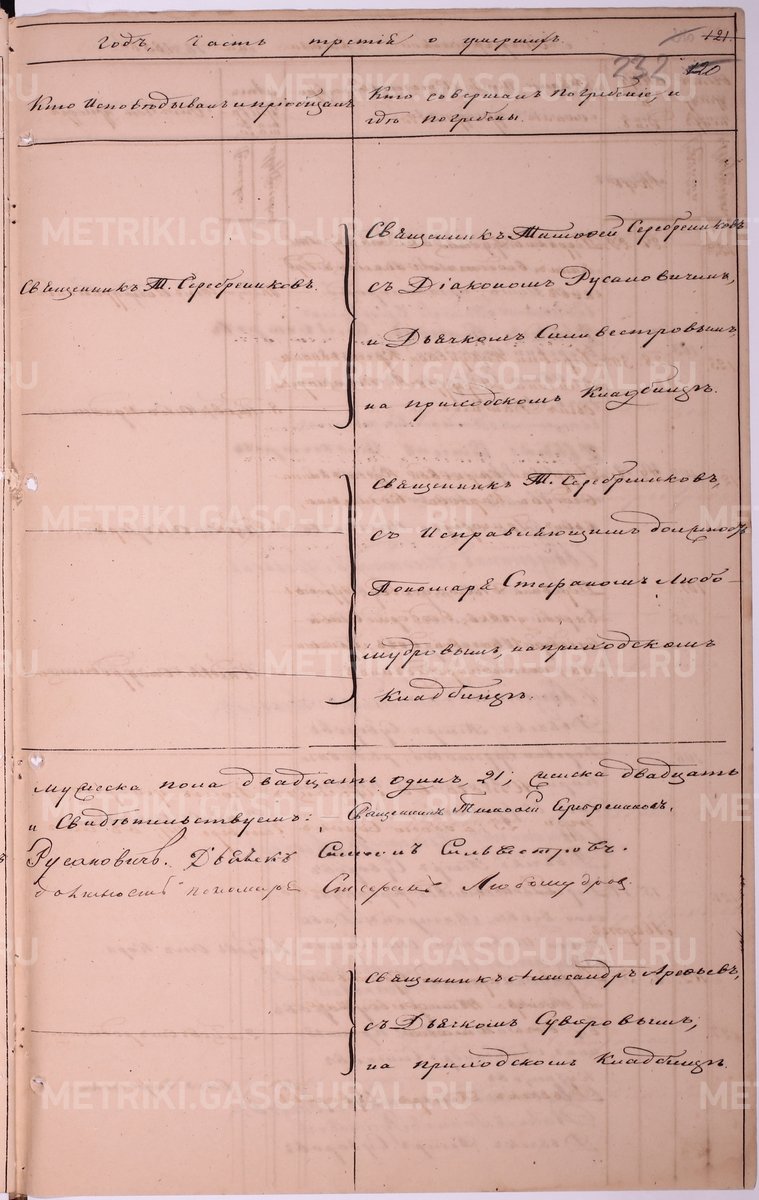 121.
Годъ, Часть третія о умершихъ.
232 120
Кто Исповѣдывалъ и пріобщалъ.
Кто совершалъ погребеніе, и
гдѣ погребены.
Священникъ Т. Серебрениковъ.
Священникъ Тимофей Серебрениковъ
съ Діакономъ Русановичемъ,
и Дьячкомъ Сильвестровымъ,
на приходскомъ Кладбищѣ.
Священникъ Т. Серебрениковъ,
съ Исправляющимъ должность
Пономаря Стефаномъ Любо-
мудровымъ, на приходскомъ
Кладбищѣ.
мужеска пола двадцать одинъ, 21; женска двадцать
и Свидѣтельствуемъ: Священникъ Тимофей Серебрениковъ.
Русановичъ. Дьячекъ Симеонъ Сильвестровъ.
должность пономаря Стефанъ Любомудров
Священникъ Александръ Арефьевъ,
съ Дьячкомъ Суворовымъ,
на приходскомъ Кладбищѣ.
METRIKI.GASO-URAL.RU